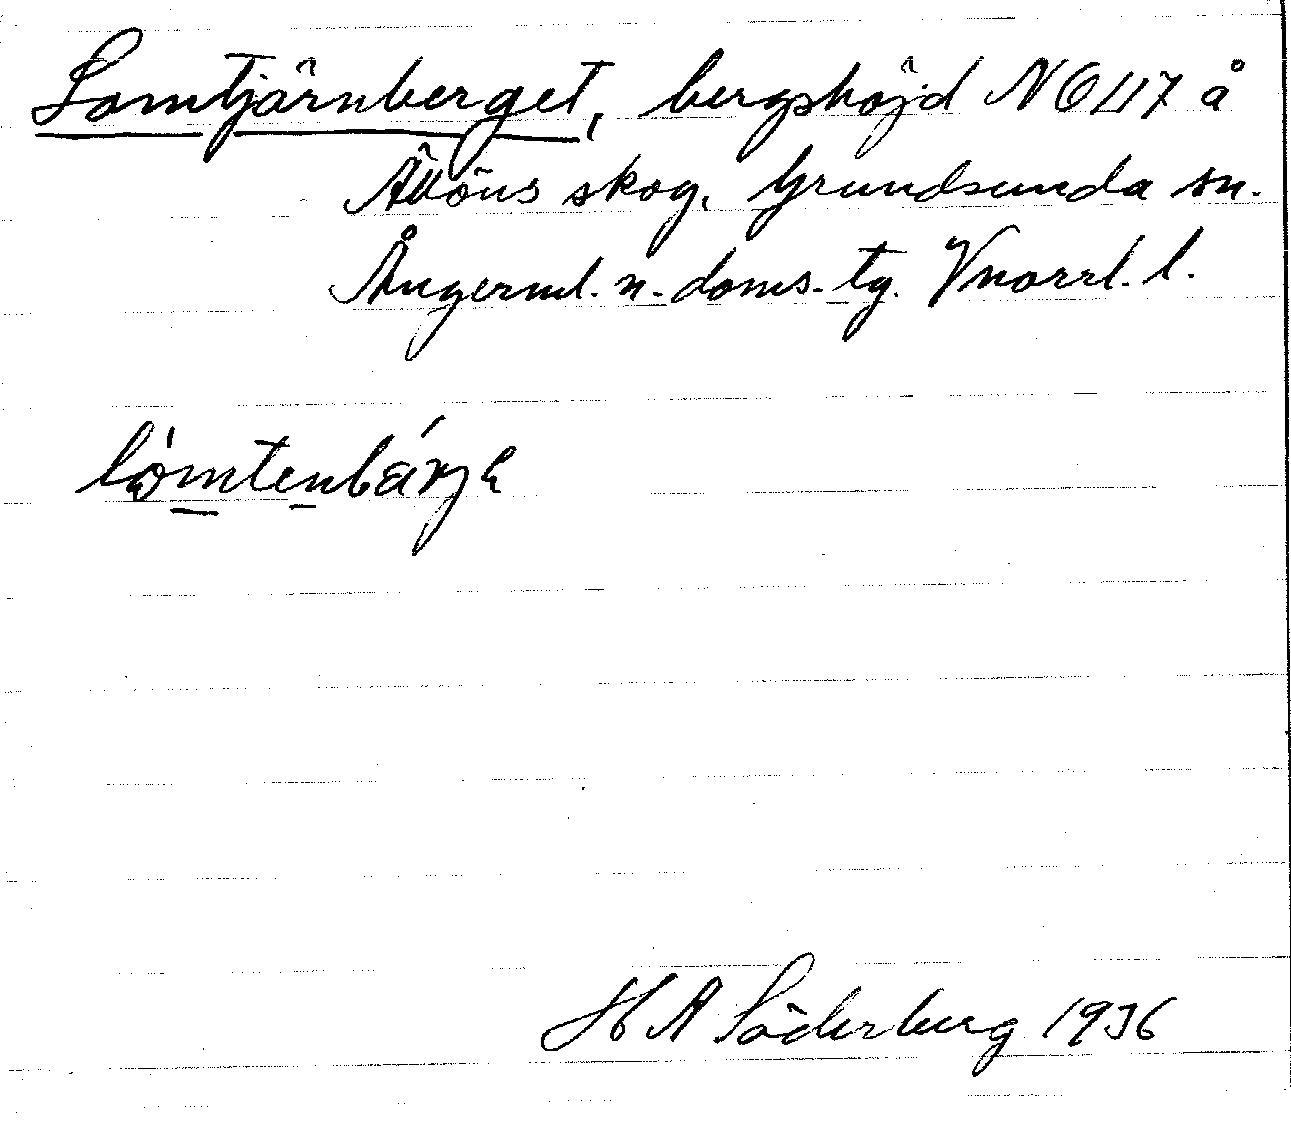 Lomtjärnberget, bergshöjd NO 117 å
Ävöns skog, Grundsunda sn.
Ångerml. n. doms. tg. Vnorrl. l.
lómtenbárje
H A Söderberg 1936